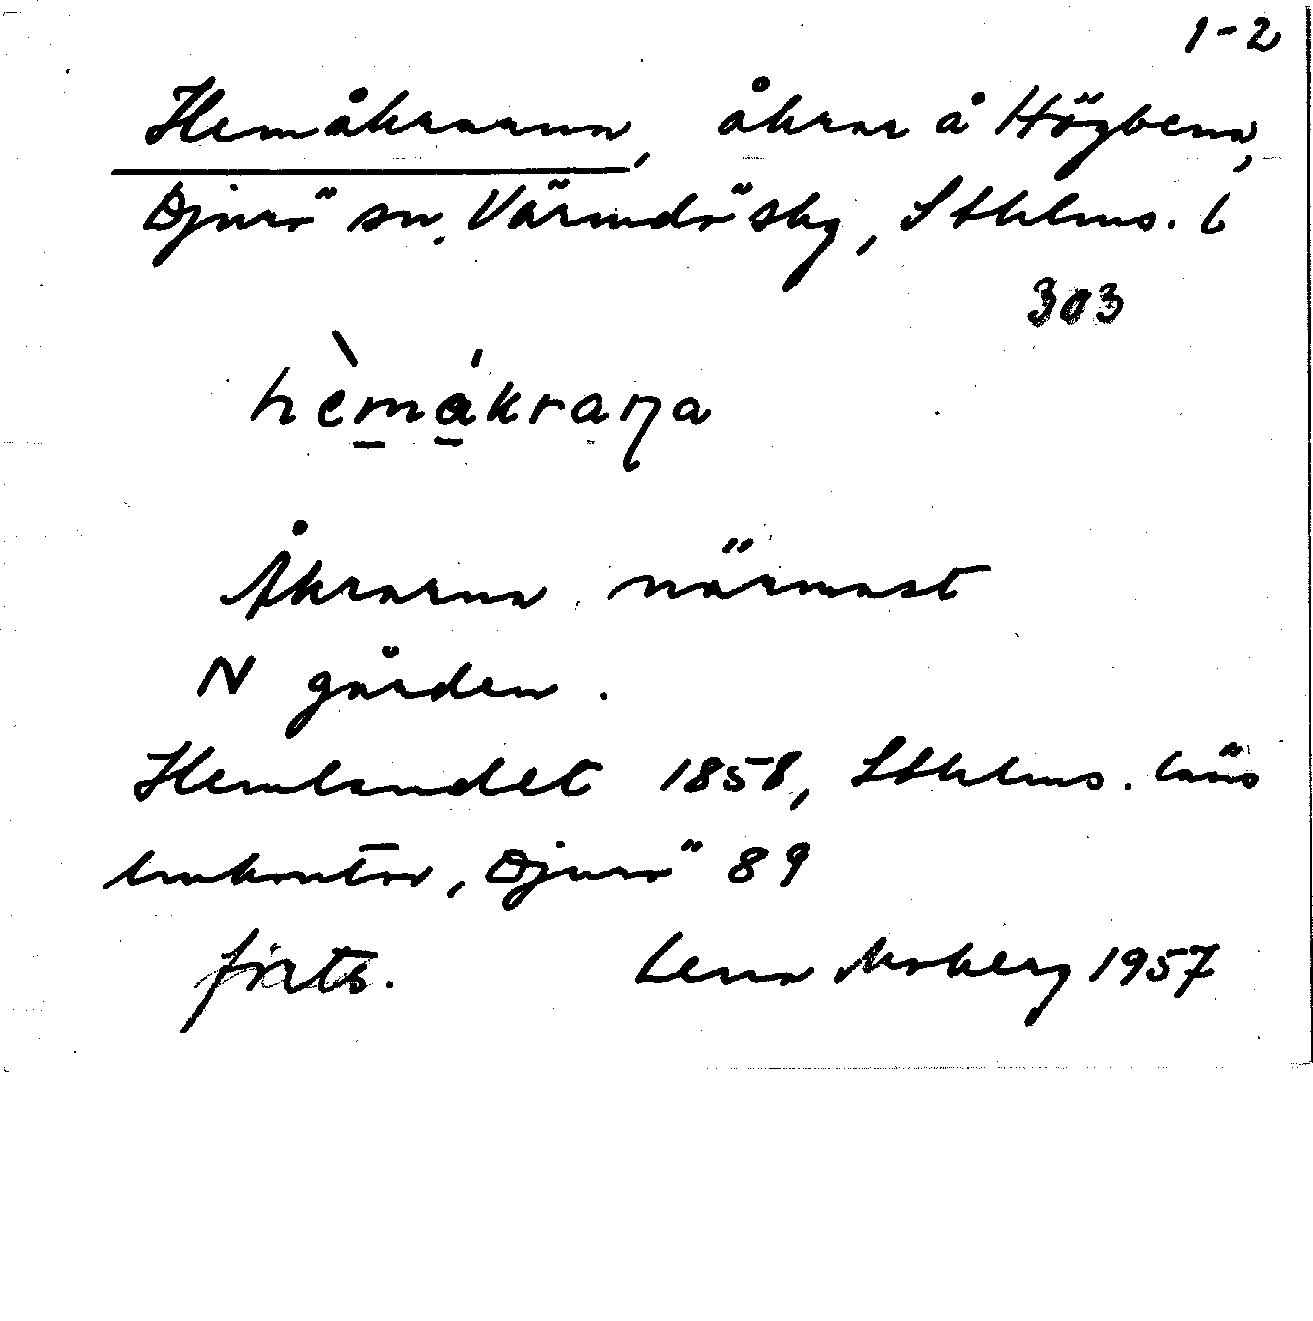 1-2
Hemåkrarna, åkrar å Högbena,
Djurö sn. Värmdö skg, Sthlms. l
303
hèmákraṇa
Åkrarna närmast
N gården.
Hemlandet 1858, Sthlms. läns
lmkontor, Djurö 89
frats. Lena Moberg 1957